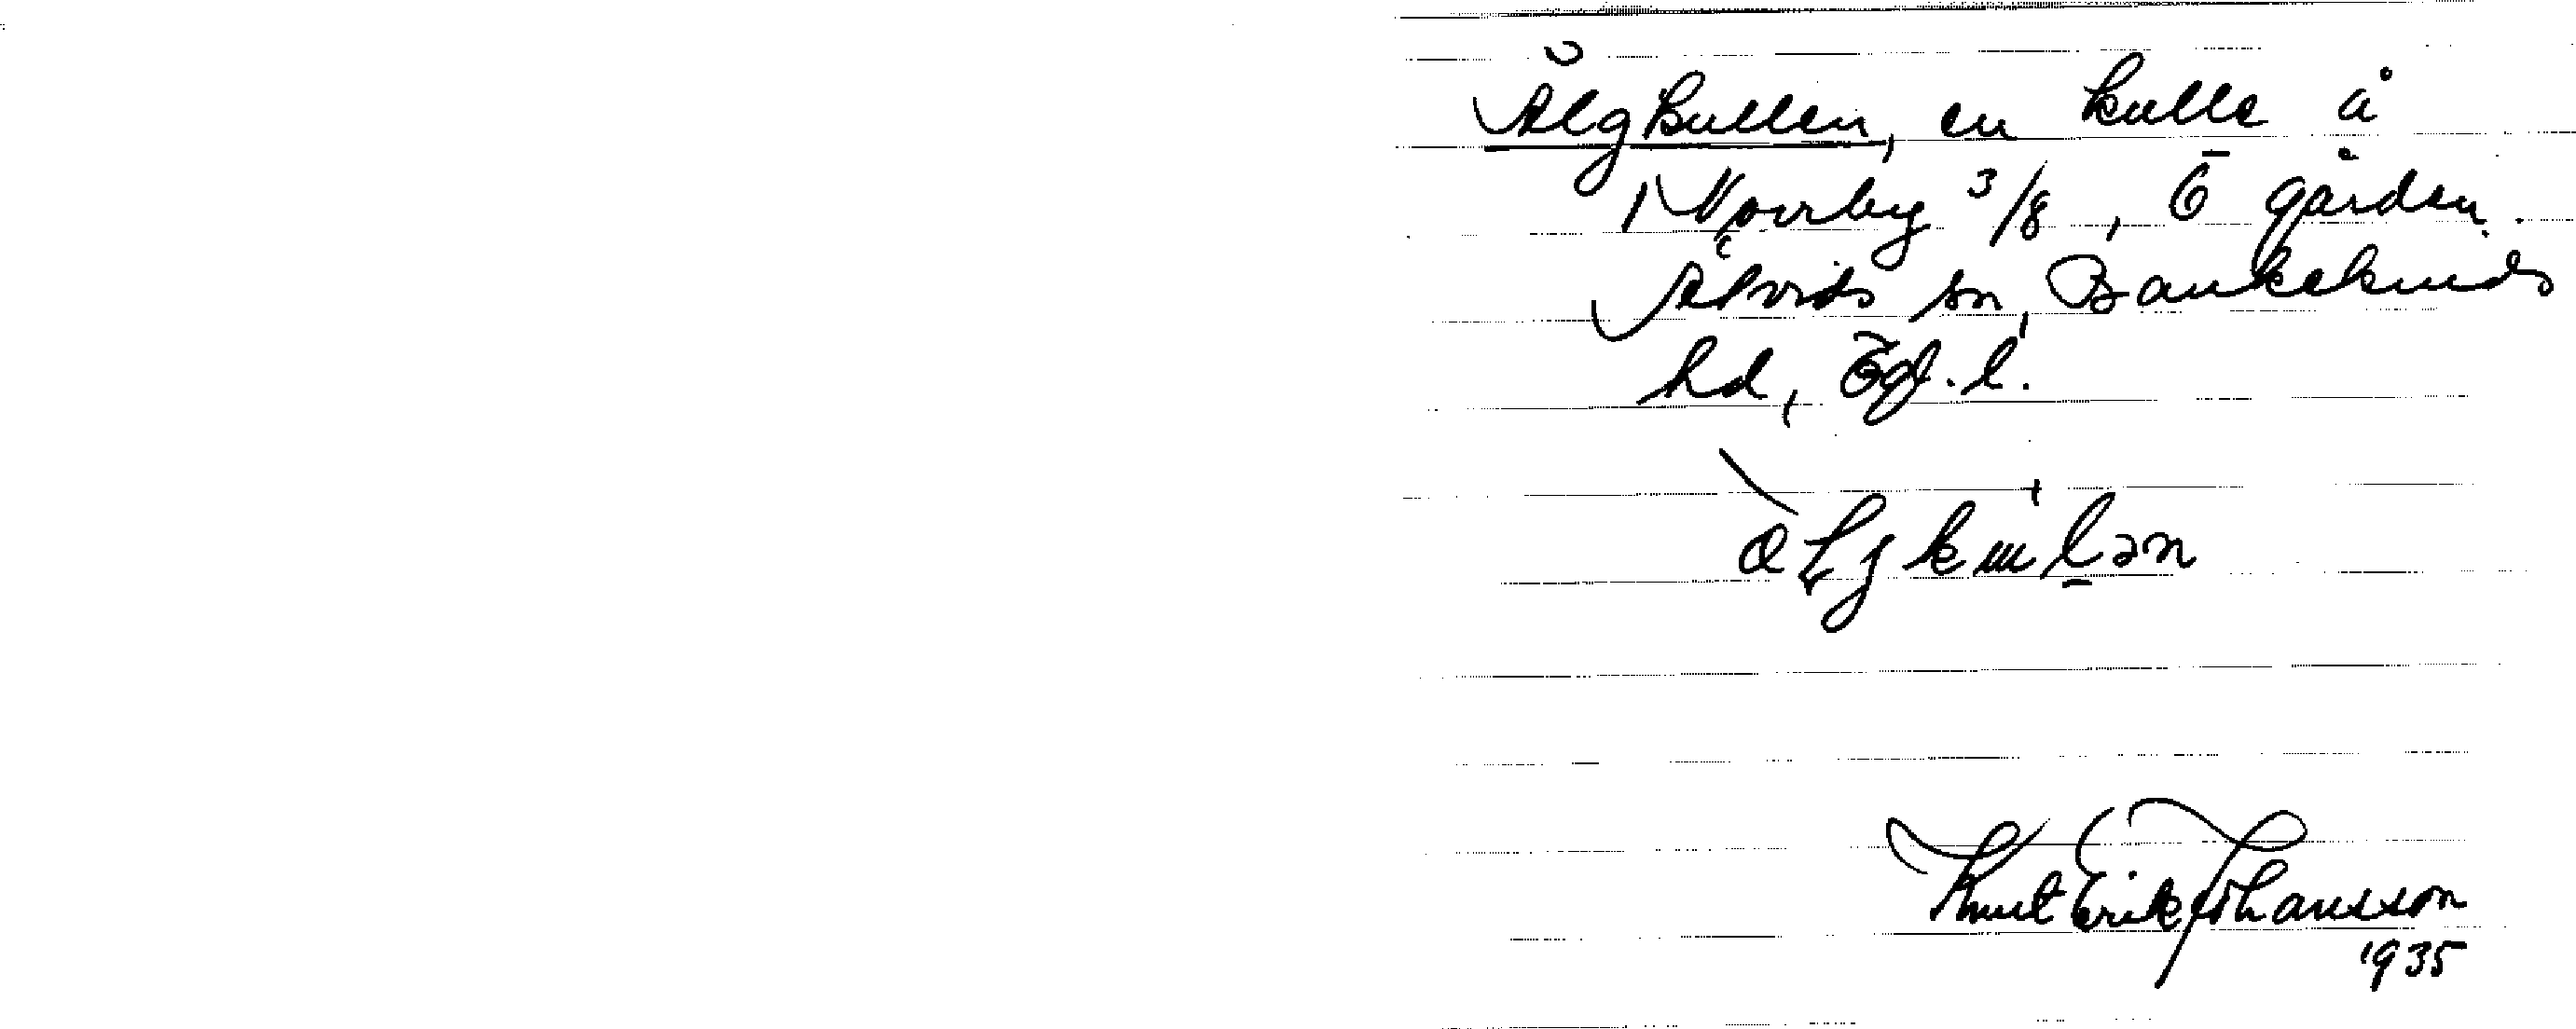 Älgkullen, en kulle å
Norrby 3/8, Ö gården.
Åtvids sn, Bankekinds
hd, Ögl. l.
Knut Erik Johansson
1935